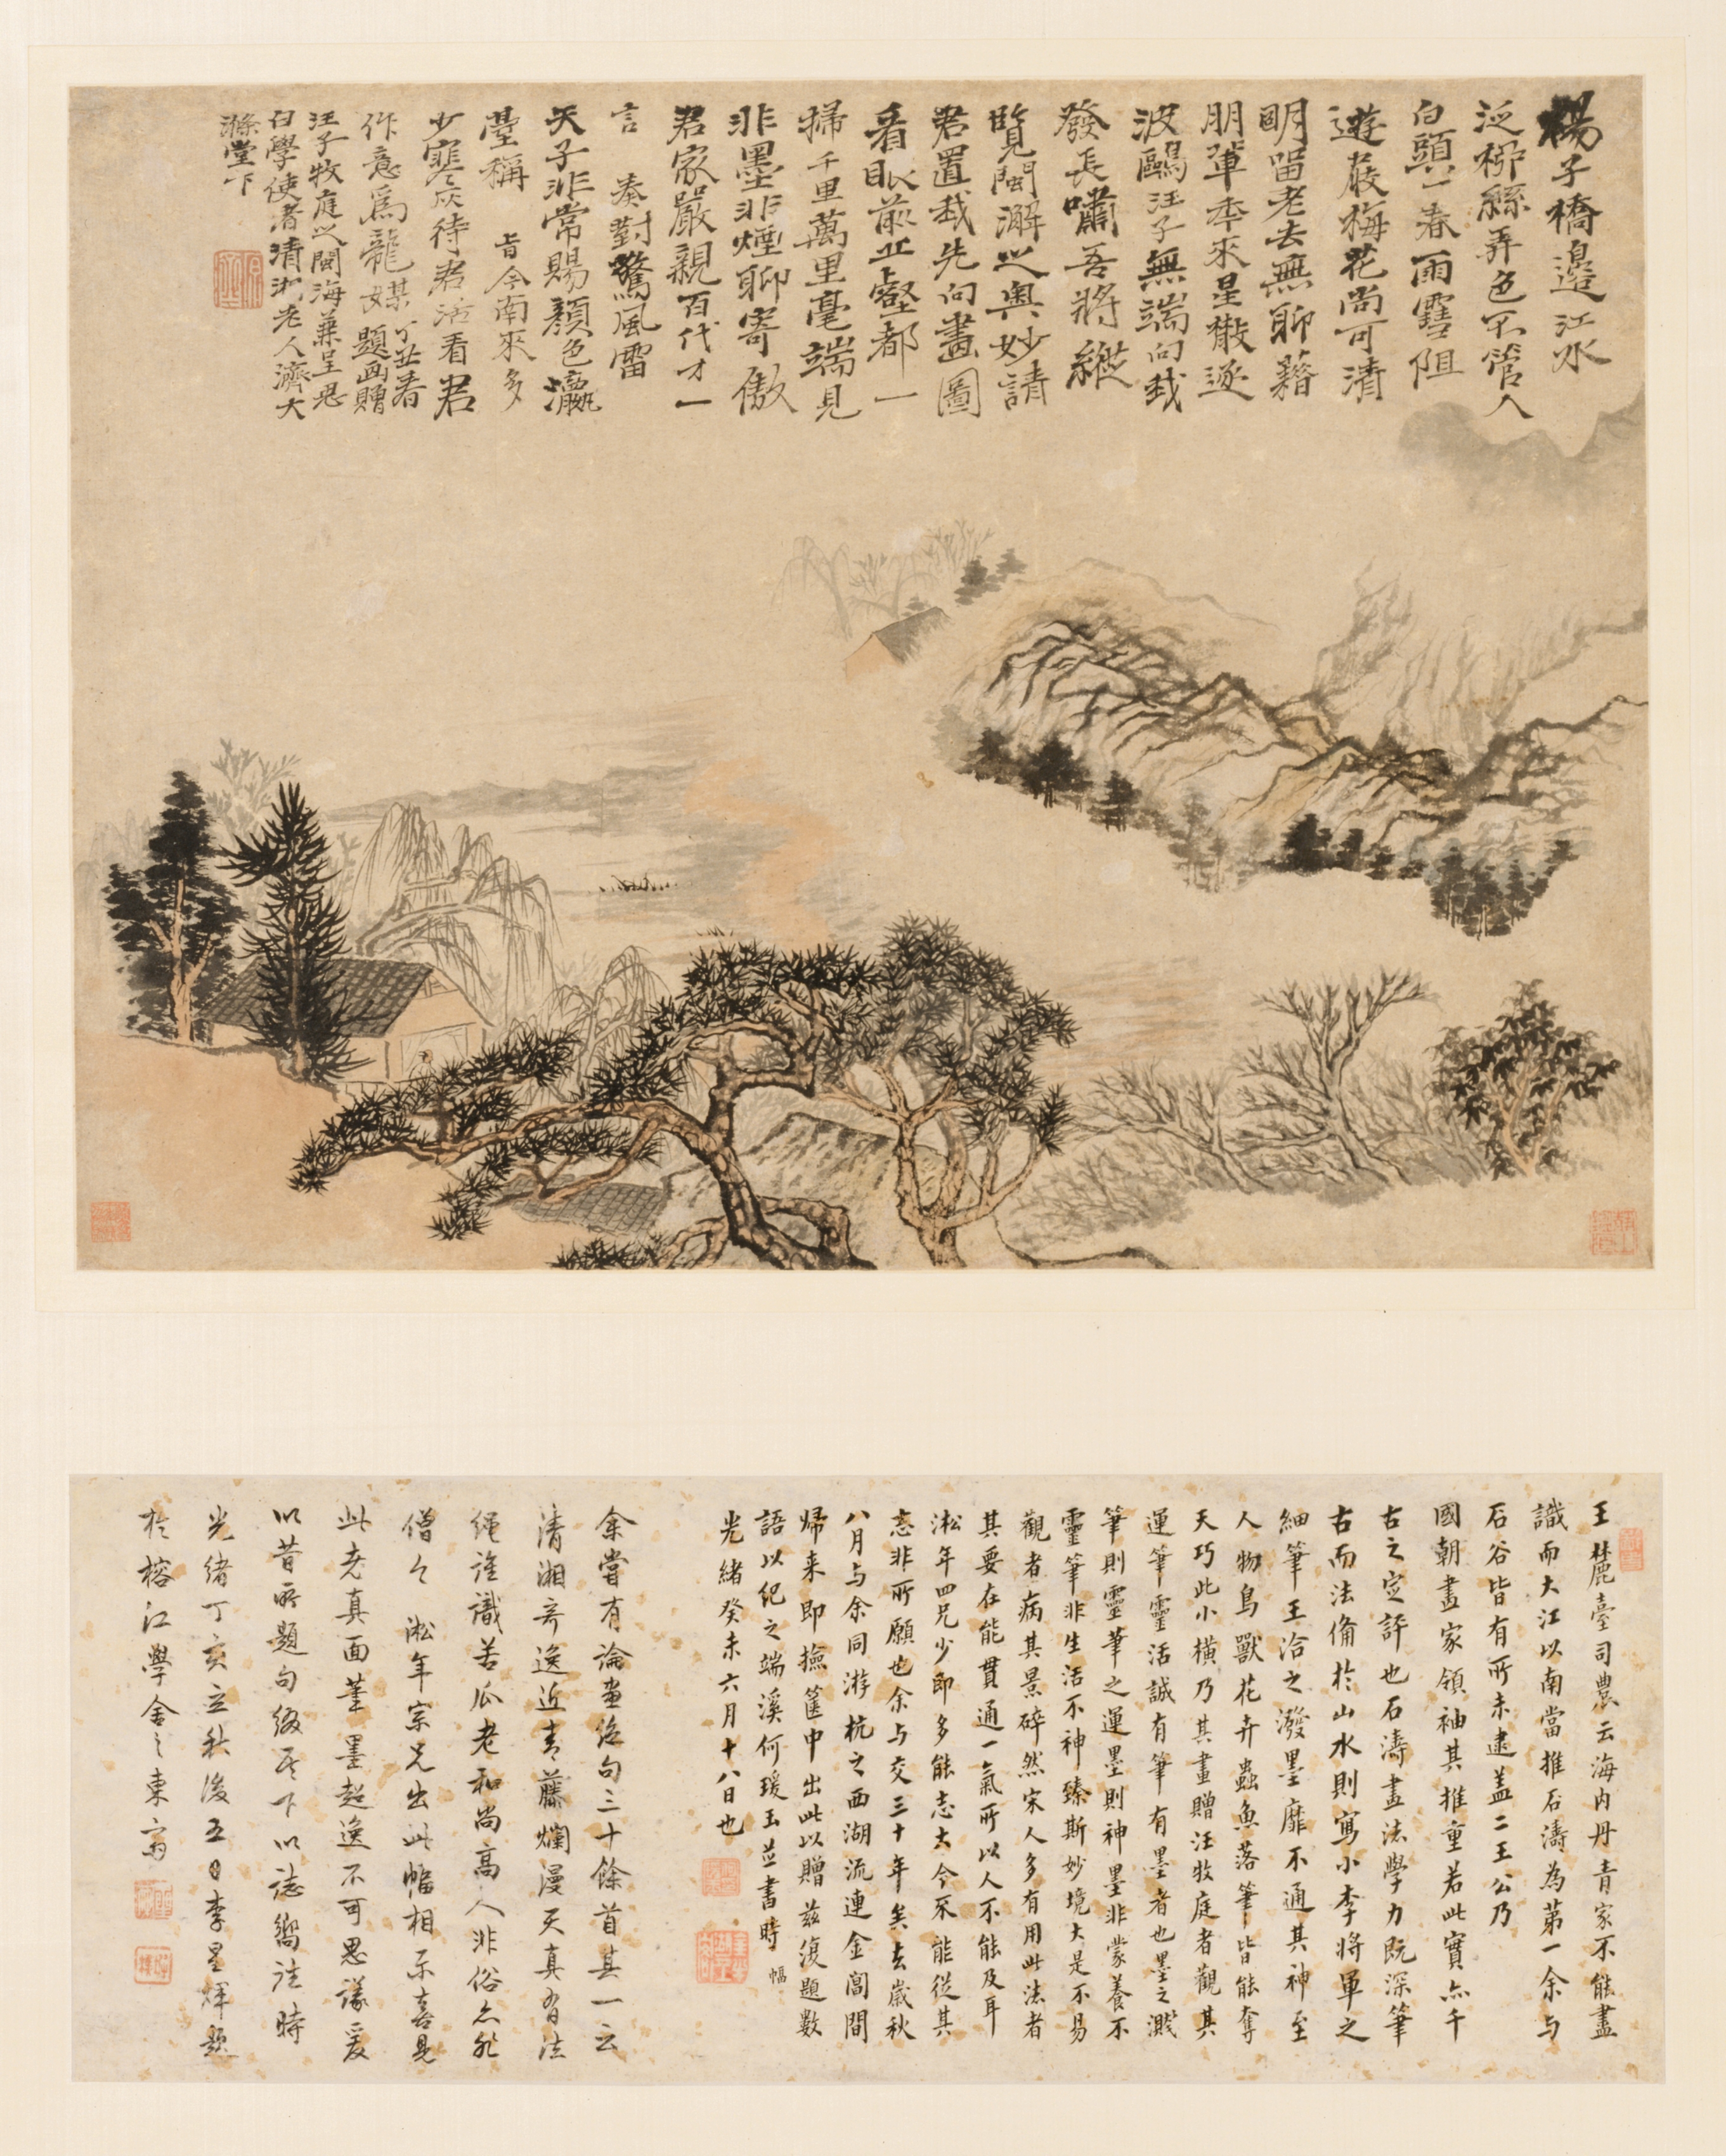 楊子橋邊江水
泛柳絲弄色不管人
白頭一春雨雪阻
遊屐梅花尚可清
明留老去無聊藉
朋輩年來星散逐
波鷗汪子無端向我
發長嘯吾將縱
覽閩澥之奧妙請
君置我先向畫圖
看眼前丘壑都一
掃千里萬里毫端見
非墨非煙聊寄傲
君家嚴親百代才一
言奏對驚風雷
天子非常賜顏色瀛
臺稱旨今南來多
少寒灰待君活看君
作意為龍媒丁丑春題畫贈
汪子牧庭之閩海兼呈思
白學使者清湘老人濟大
滌堂下
王麓臺司農云海內丹青家不能盡
識而大江以南當推石濤為第一余與
石谷皆有所未逮蓋二王公乃
國朝畫家領袖其推重若此實為千
古之定評也石濤畫法學力既深筆
古而法備於山水則寫小李將軍之
細筆王洽之潑墨靡不通其神至
人物鳥獸花卉蟲魚落筆皆能奪
天巧此小橫乃其畫贈汪牧庭者觀其
運筆靈活誠有筆有墨者也墨之濺
筆則靈筆之運墨則神墨非蒙養不
靈筆非生活不神臻斯妙境大是不易
觀者病其景碎然宋人多有用此法者
其要在能貫通一氣所以人不能及耳
淞年四兄少即多能志大今不能從其
志非所願也余與交三十年矣去歲秋
八月與余同游杭之西湖流連金閶間
歸來即撿篋中出此以贈茲復題數
語以紀之端溪何瑗玉並書時 幅
光緒癸未六月十八日也
余嘗有論畫絕句三十餘首其一云
清湘奇逸近青藤爛漫天真有法
繩誰識苦瓜老和尚高人非俗亦非
僧今淞年宗兄出此幅相示喜見
此老真面筆墨超逸不可思議爰
以昔所題句綴於下以誌嚮往時
光緒丁亥立秋後五日李星輝題
於榕江學舍之東齋